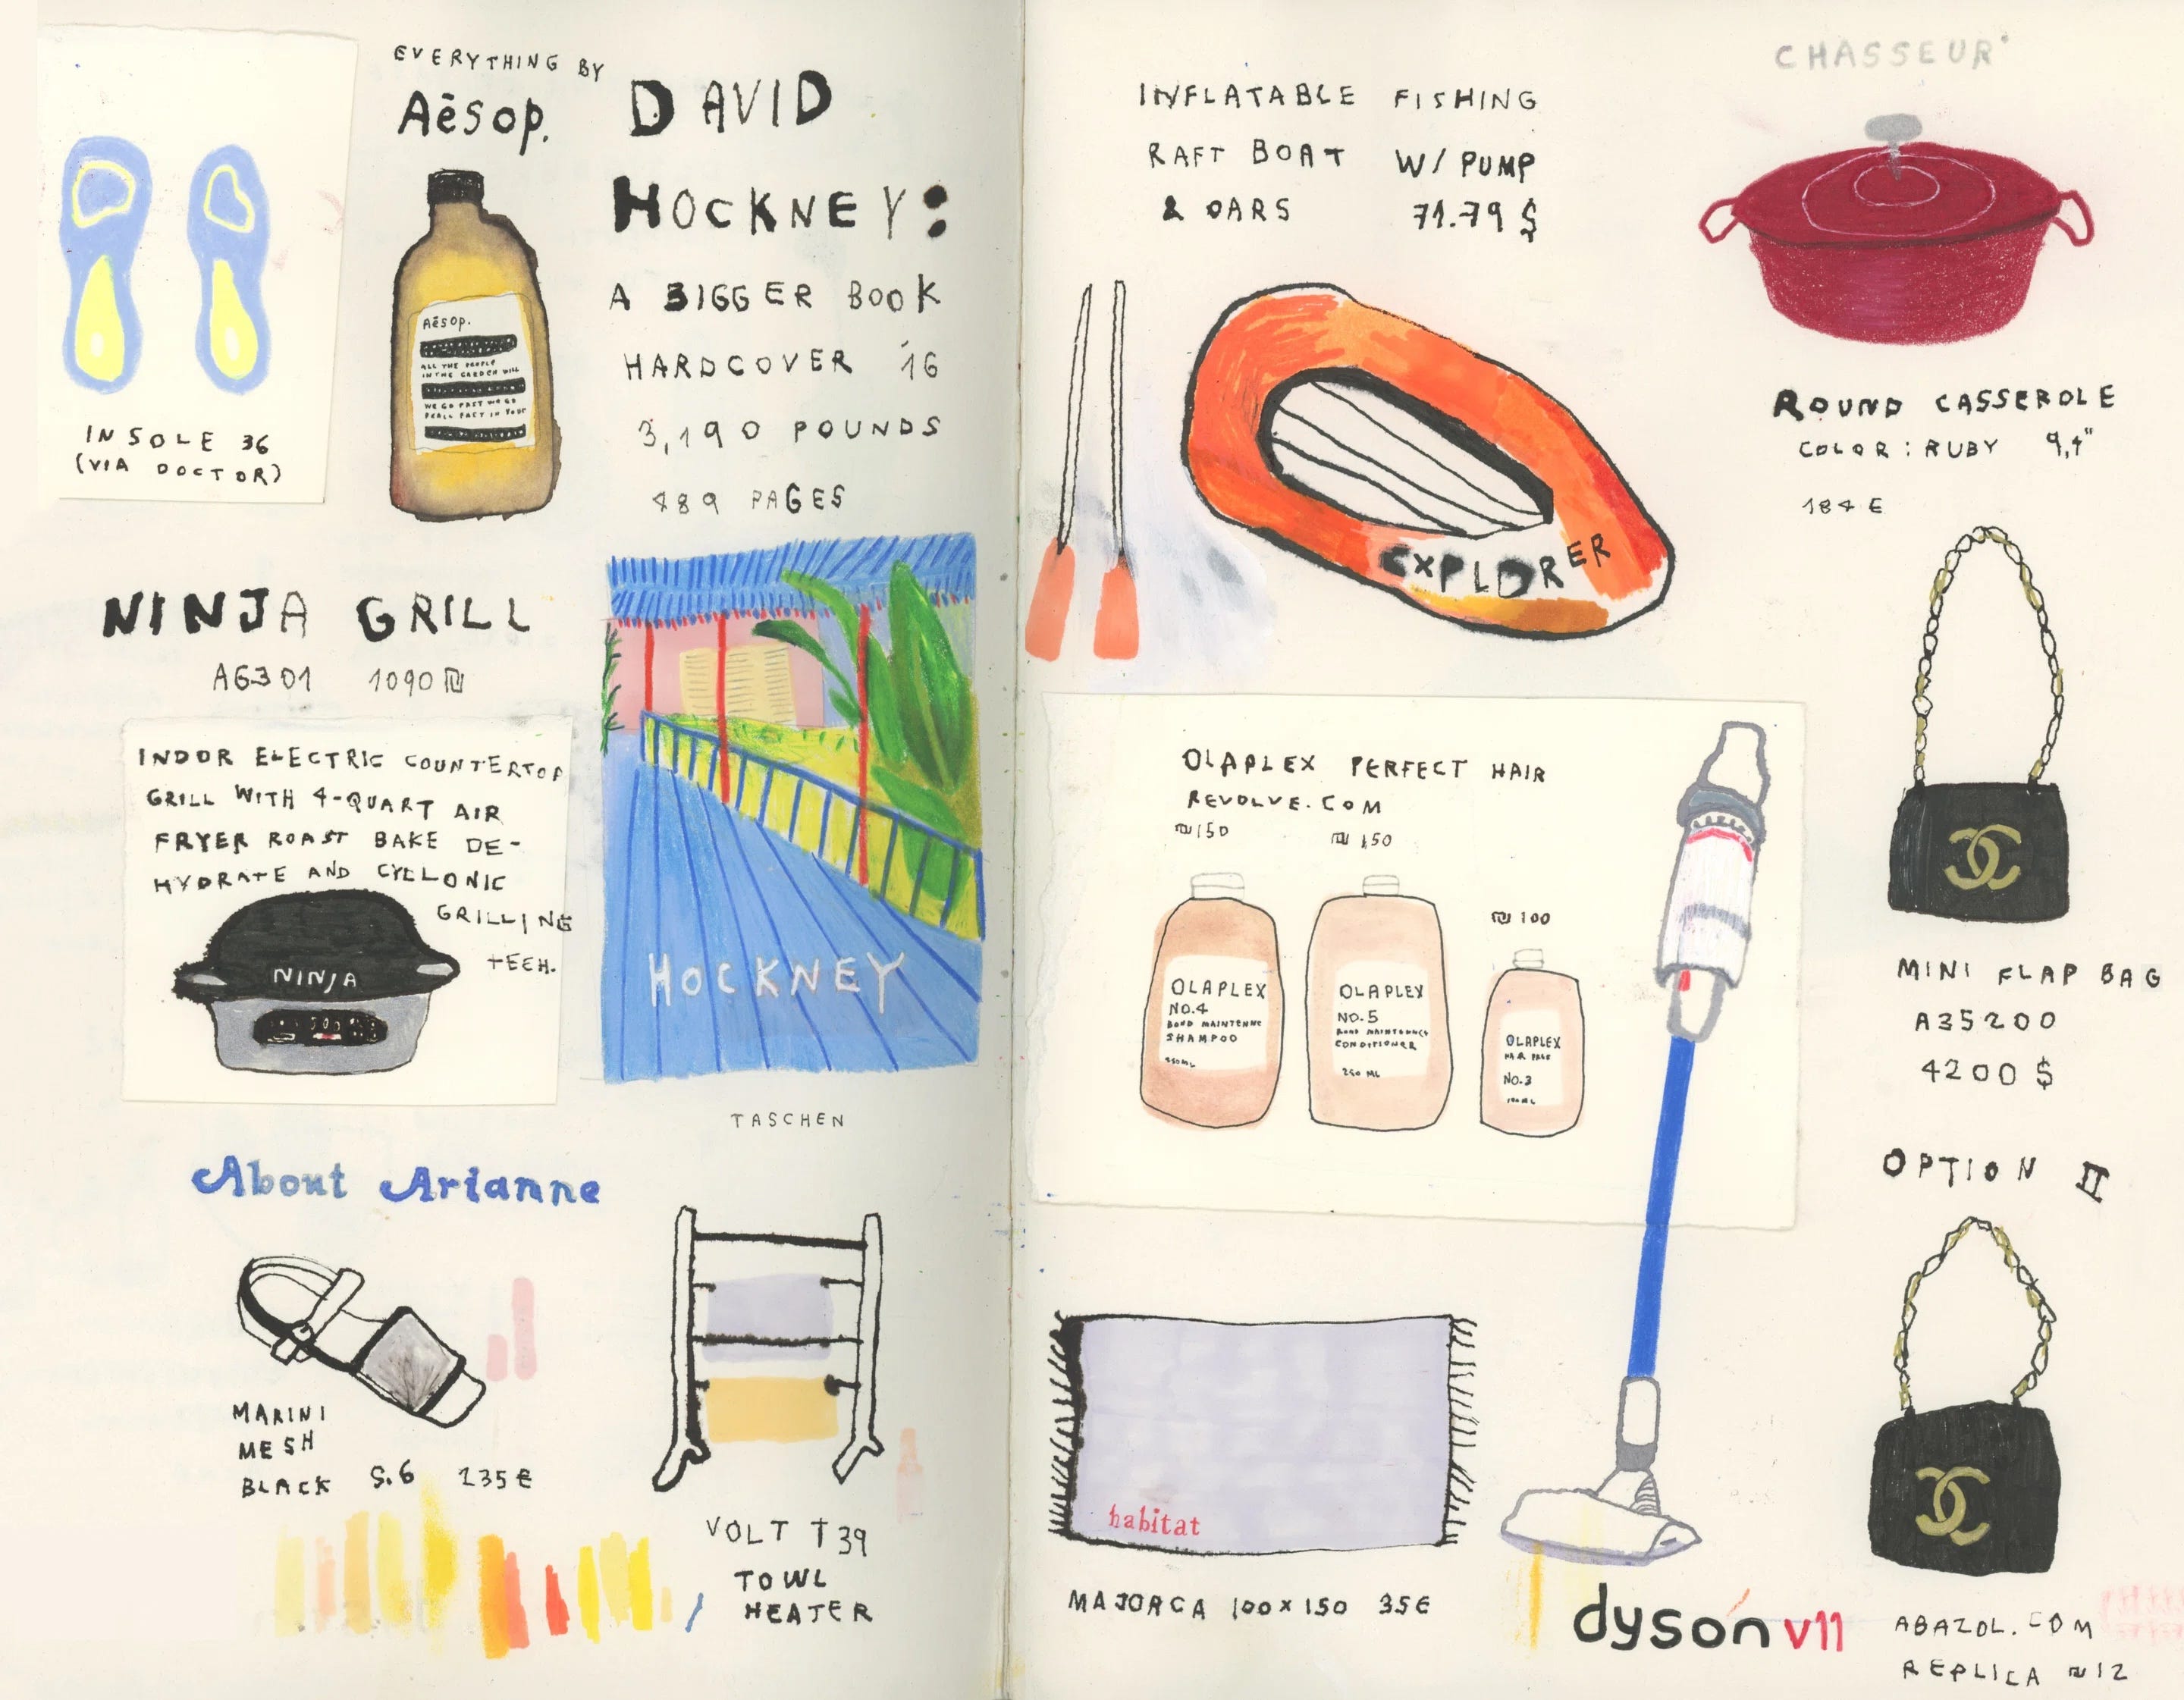 EVERYTHING BY
Aēsop.
Aēsop.
ALL THE PEOPLE
IN THE GARDEN WILL
INSOLE 36
(VIA DOCTOR)
DAVID
HOCKNEY:
A BIGGER BOOK
HARDCOVER '16
3,190 POUNDS
489 PAGES
HOCKNEY
TASCHEN
NINJA GRILL
AG301 1090 ₪
INDOR ELECTRIC COUNTERTOP
GRILL WITH 4-QUART AIR
FRYER ROAST BAKE DE-
HYDRATE AND CYCLONIC
GRILLING
TECH.
NINJA
About Arianne
MARINI
MESH
BLACK S.6 235€
VOLT T39
TOWL
HEATER
INFLATABLE FISHING
RAFT BOAT W/ PUMP
& OARS 71.79 $
EXPLORER
CHASSEUR
ROUND CASSEROLE
COLOR: RUBY 9,4"
184 E
OLAPLEX PERFECT HAIR
REVOLVE.COM
₪150 ₪ 150
₪ 100
OLAPLEX
NO.4
BOND MAINTENNE
SHAMPOO
250ML
OLAPLEX
NO.5
BOND MAINTENNCE
CONDITIONER
250 ML
OLAPLEX
NO.3
100ML
MINI FLAP BAG
A35200
4200 $
OPTION II
ABAZOL.COM
REPLICA ₪12
habitat
MAJORCA 100×150 35€
dyson v11